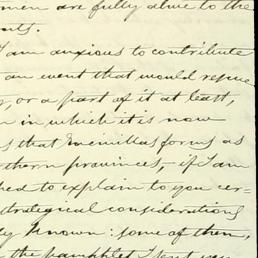 men are fully alive to the
nts.
I am anxious to contribute
an event that would rescue
, or a part of it at least,
n in which it is now
s that Encinillas forms as
rthern provinces, – if I am
hed to explain to you cer-
strategical considerations
ly known: some of them,
the pamphlet I sent you